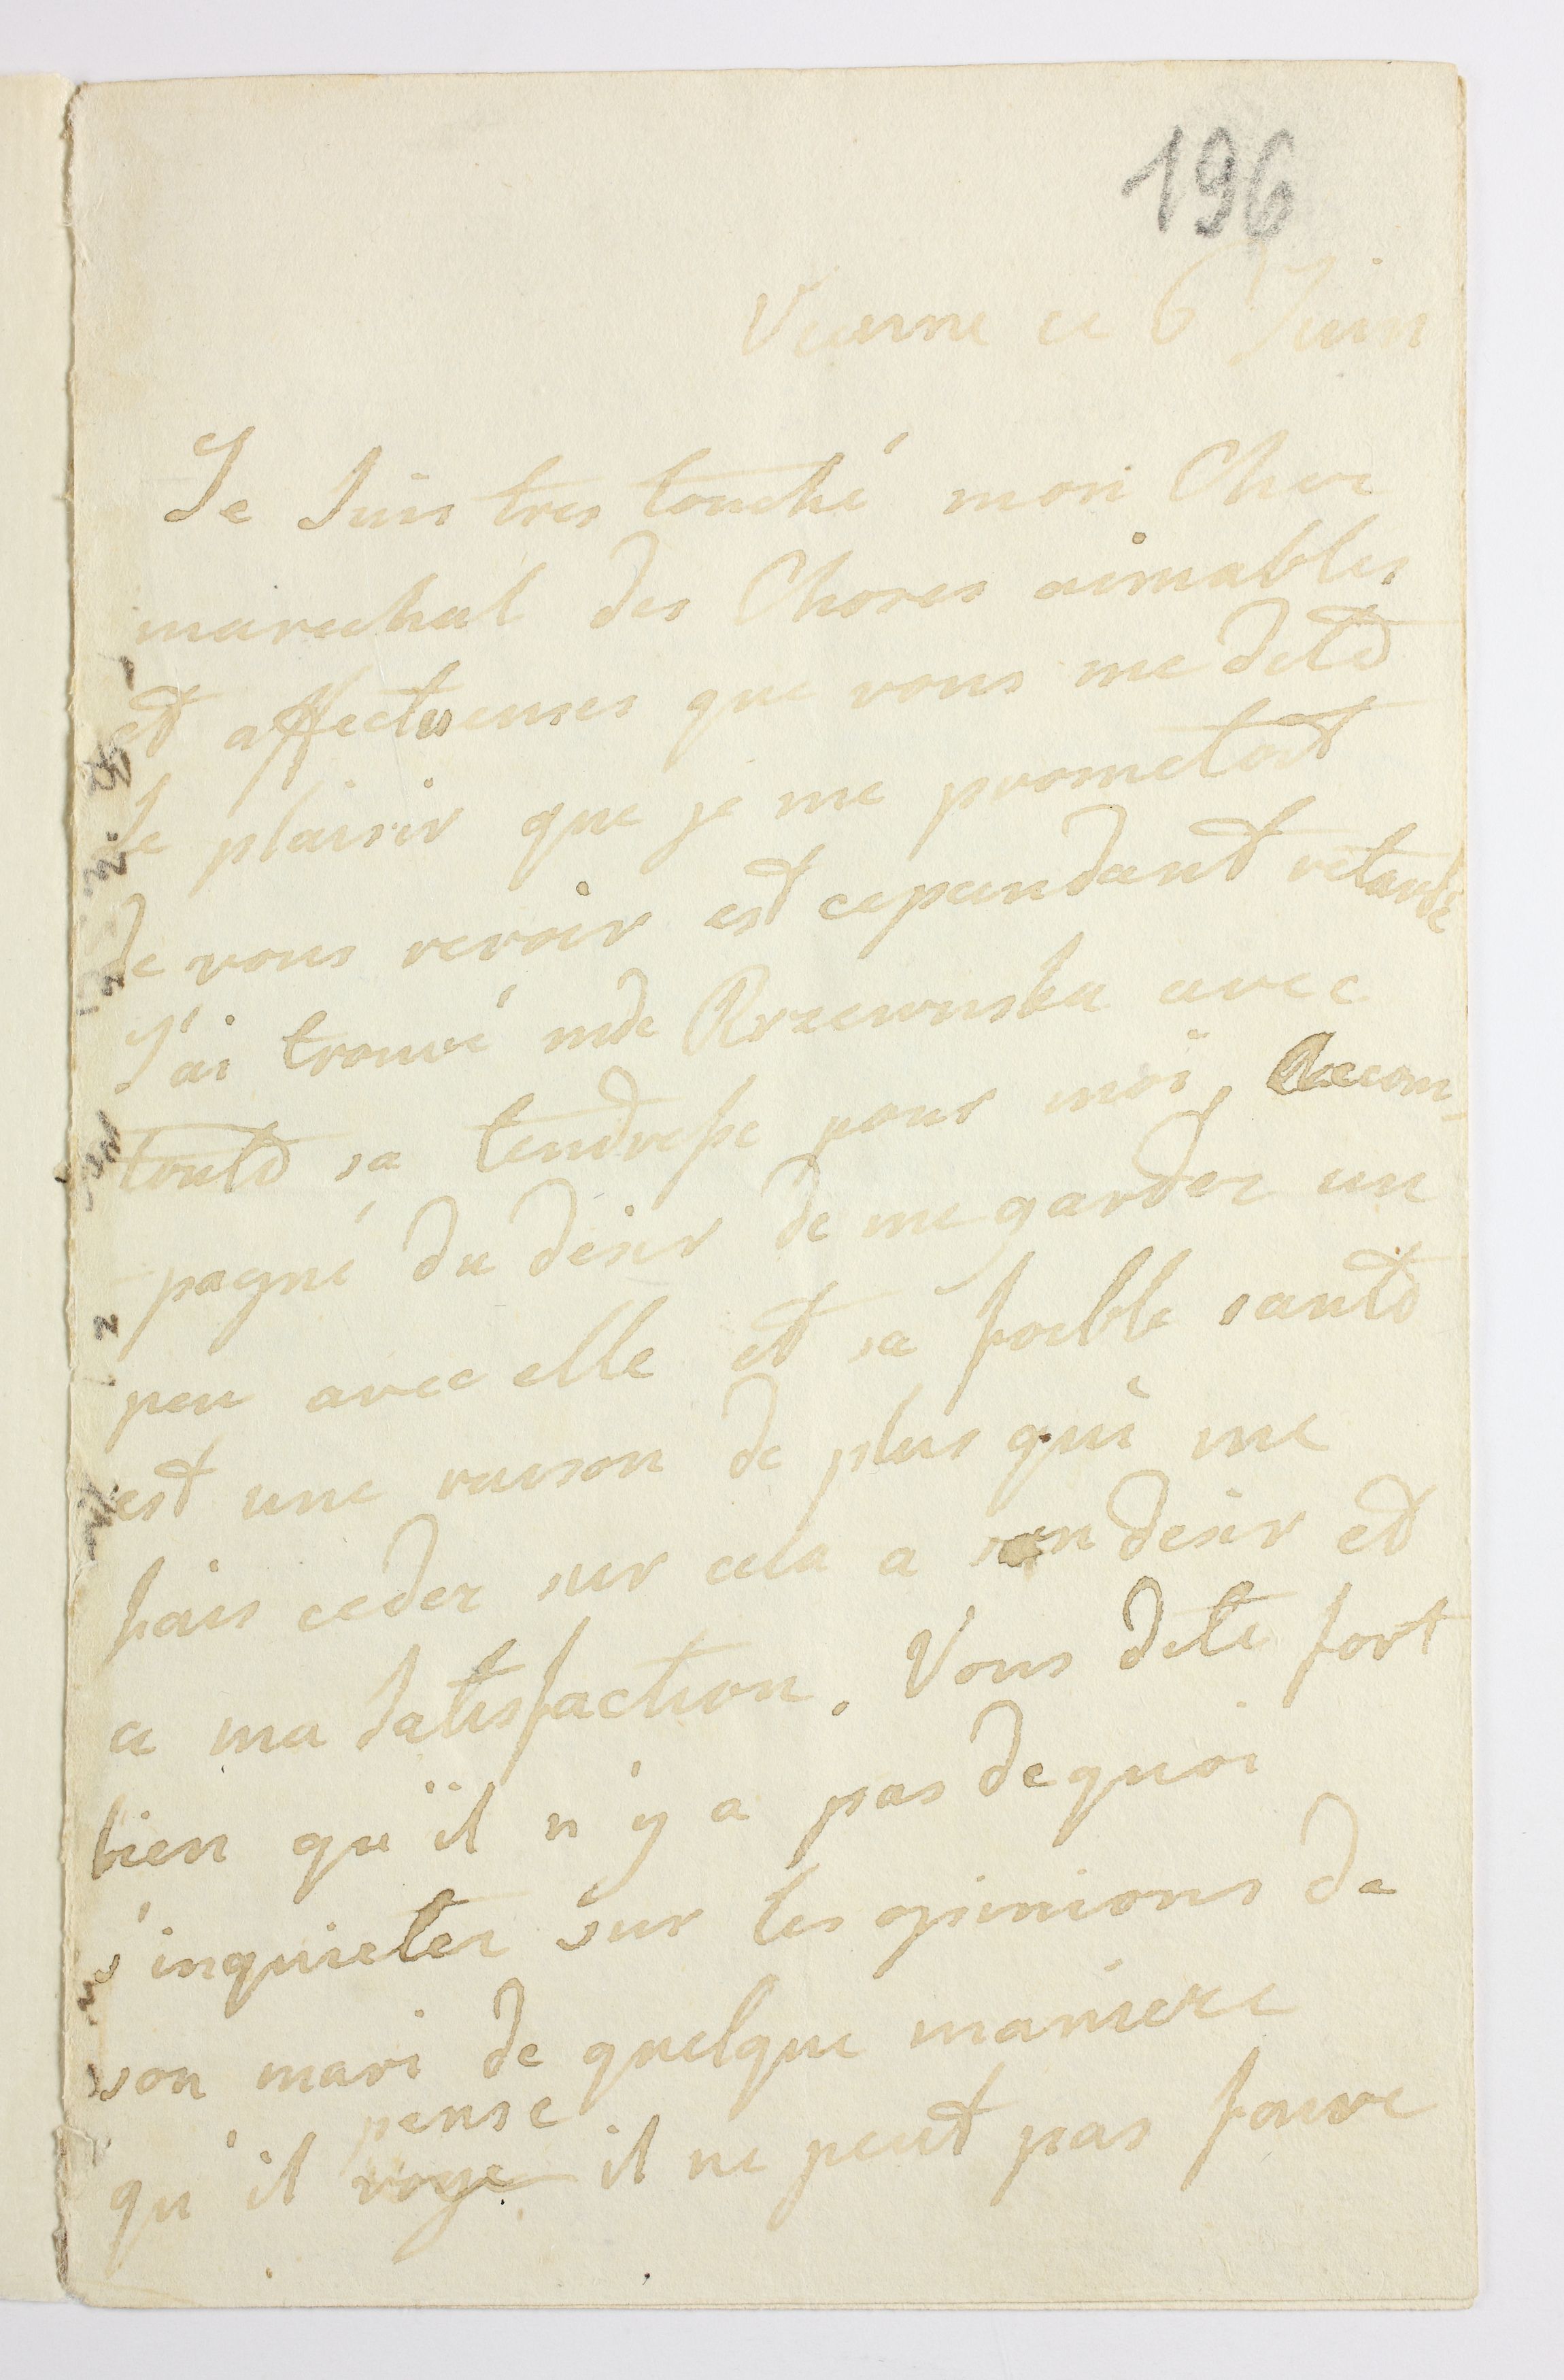 196
Vienne ce 6 Juin
Je Suis tres touché mon Cher
marechal des Choses aimables
et affectueuses que vous me dite
le plaisir que je me prometoit
de vous revoir est cependant retardé
J'ai trouvé mde Rzewuska avec
toute sa tendresse pour moi, Accom-
pagné du desir de me garder un
peu avec elle et sa foible santé
est une raison de plus qui me
fais ceder sur cela a son desir et
a ma Satisfaction. Vous dite fort
bien qu'il n'y a pas de quoi
s'inquieter sur les opinions de
son mari de quelque maniere
pense
qu'il voye il ne peut pas faire